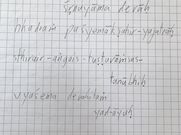 śṛṇuyāma devāḥ
bhadraṁ paśyemākṣabhir-yajatrāḥ
sthirair-aṅgais-tuṣṭuvāṁsas-
tanūbhiḥ
vyaśema devahitaṁ
yad-āyuḥ